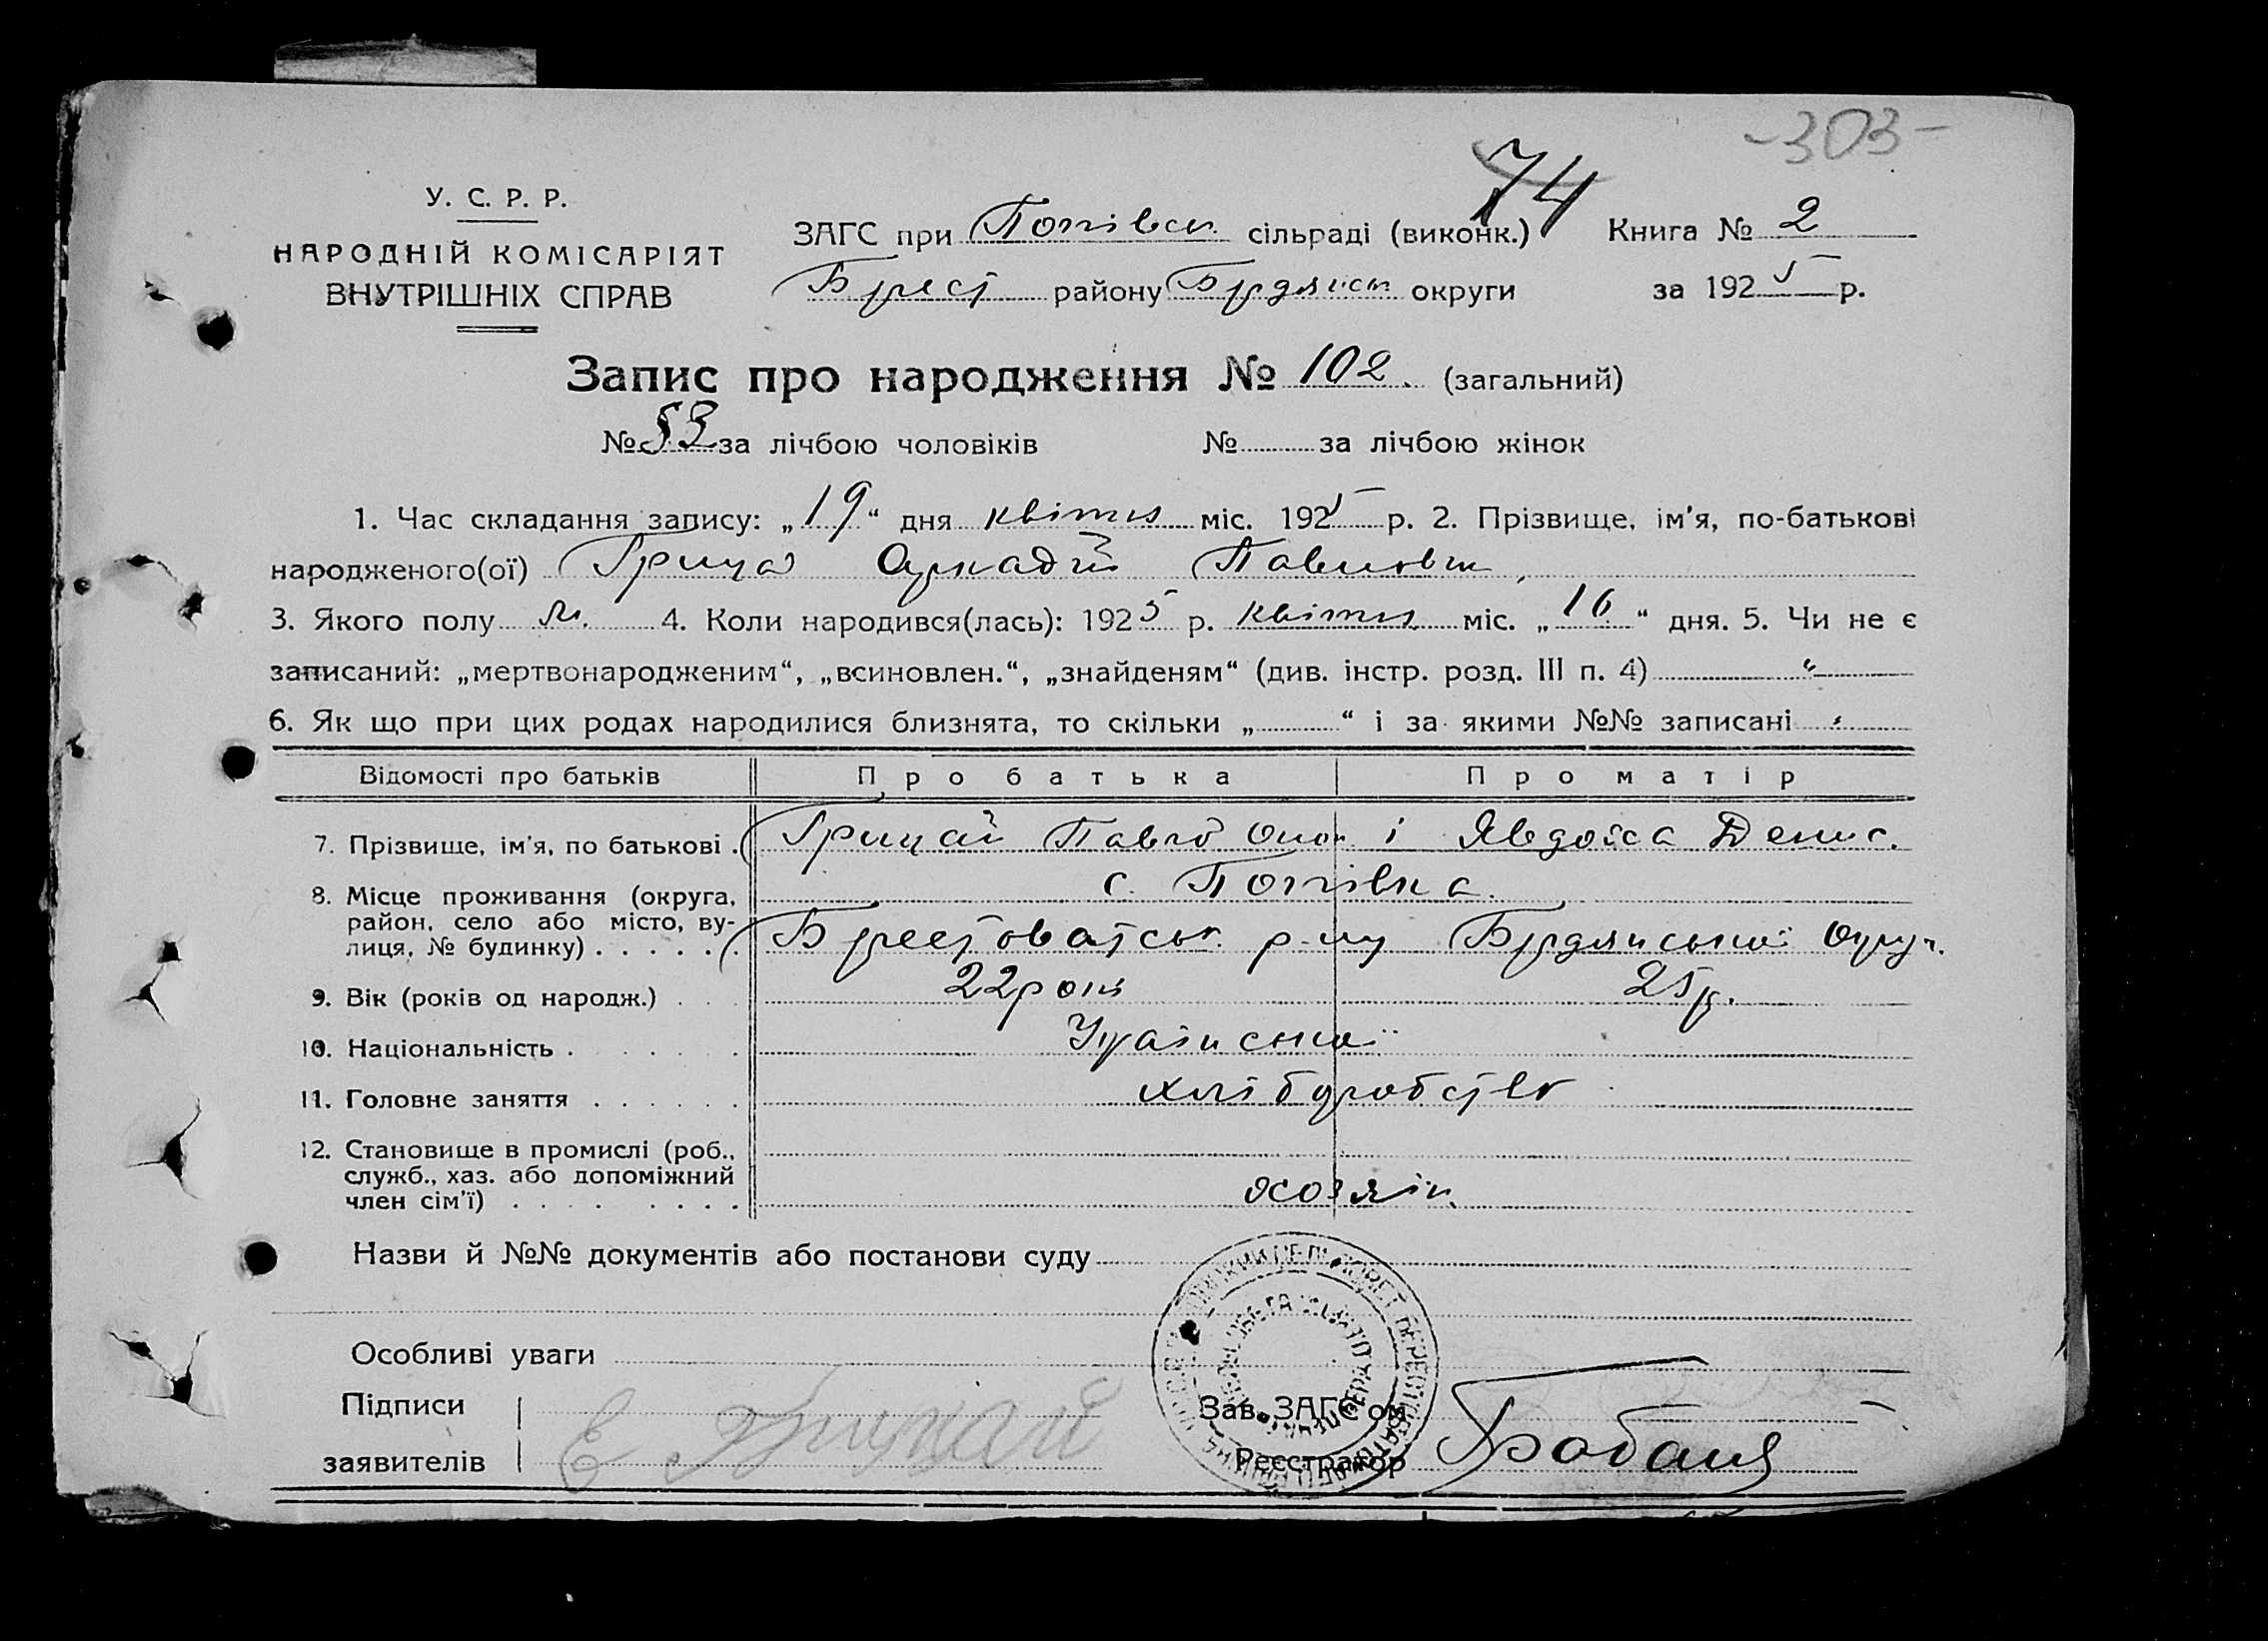 -303-
74
У. С. Р. Р.
НАРОДНІЙ КОМІСАРІЯТ
ВНУТРІШНІХ СПРАВ
ЗАГС при Попівськ. сільраді (виконк.) Книга № 2
Брест району Бердянськ округи за 1925 р.
Запис про народження № 102. (загальний)
№ 53 за лічбою чоловіків № за лічбою жінок
1. Час складання запису: „19“ дня квітня міс. 1925 р. 2. Прізвище, ім'я, по-батькові
народженого(ої) Грицай Аркадій Павлович
3. Якого полу м. 4. Коли народився(лась): 1925 р. квітня міс. „16“ дня. 5. Чи не є
записаний: „мертвонародженим“, „всиновлен.“, „знайденям“ (див. інстр. розд. III п. 4) "
6. Як що при цих родах народилися близнята, то скільки „ “ і за якими №№ записані
Відомості про батьків Про батька Про матір
7. Прізвище, ім'я, по батькові . Грицай Павло і Явдоха Денис.
8. Місце проживання (округа, с. Попівка.
район, село або місто, ву-
лиця, № будинку) . . . . . . Берестоватськ. р-ну Бердянської округ.
9. Вік (років од народж.) . . . 22 рок 25 р.
10. Національність . . . . . . . Української
11. Головне заняття . . . . . . хліборобство
12. Становище в промислі (роб.,
служб., хаз. або допоміжний
член сім'ї) . . . . . . . . хозяїн.
Назви й №№ документів або постанови суду
Особливі уваги
Підписи
заявителів Грицай
Зав. ЗАГС'ом
Реєстратор